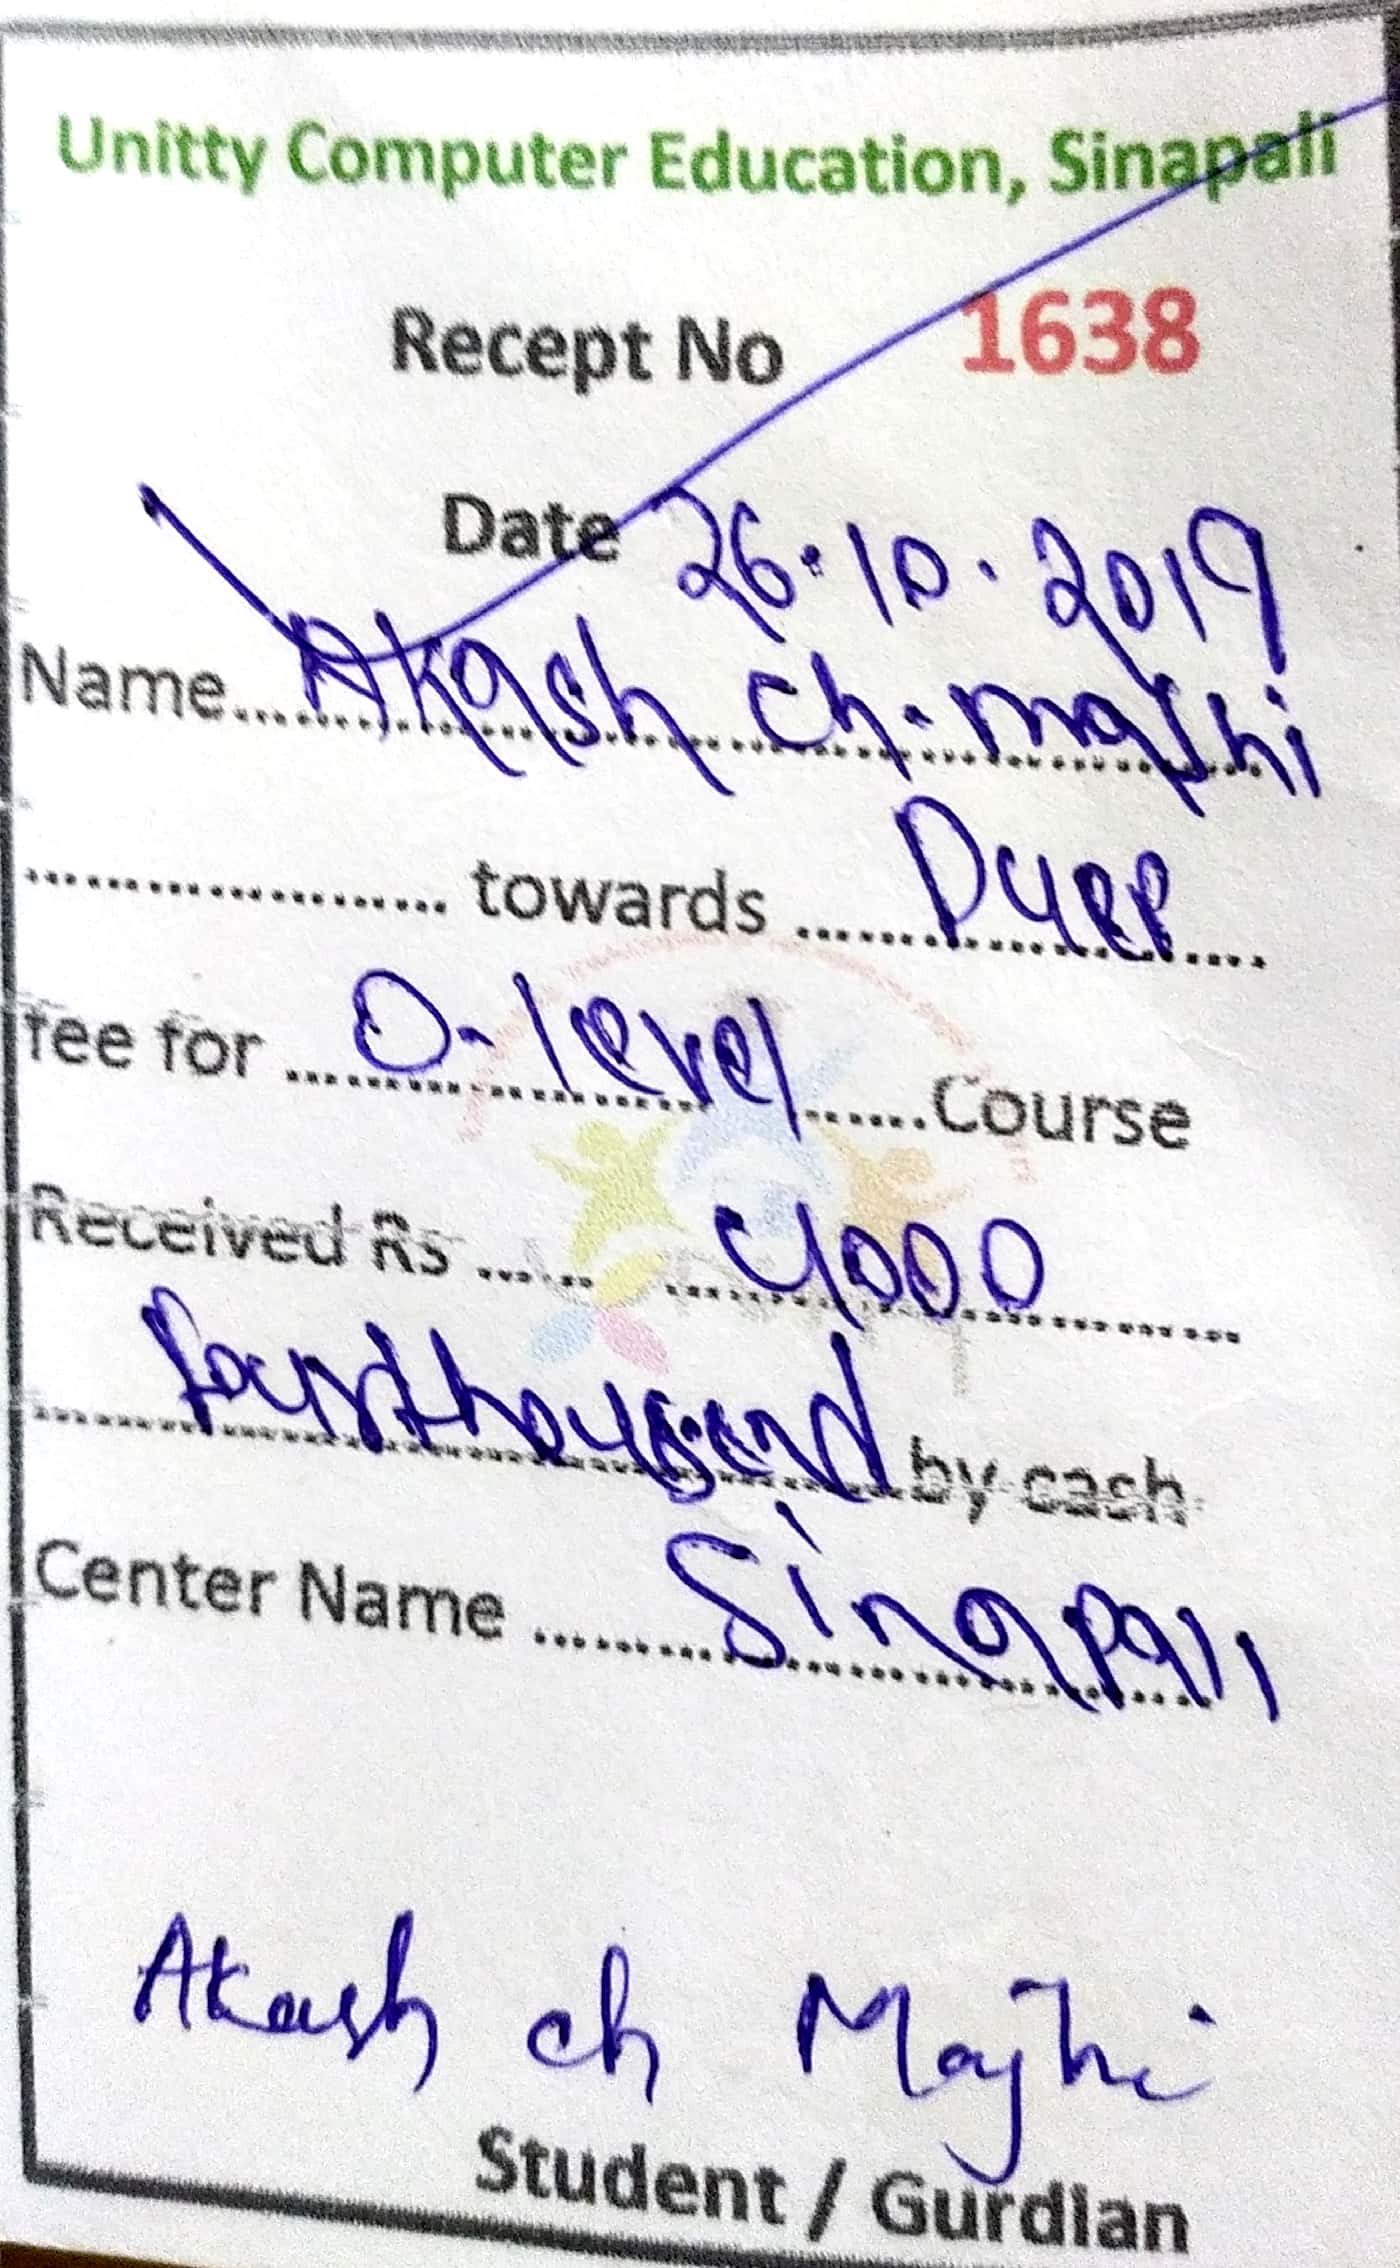 Unitty Computer Education, Sinapali
Recept No 1638
Date 26.10.2019
Name.... Akash ch. majhi
.................... towards ....
fee for .... O-level .... Course
Received Rs .... 4000
fourthousand by cash
Center Name .... Sinapali
Akash ch Majhi
Student / Gurdian